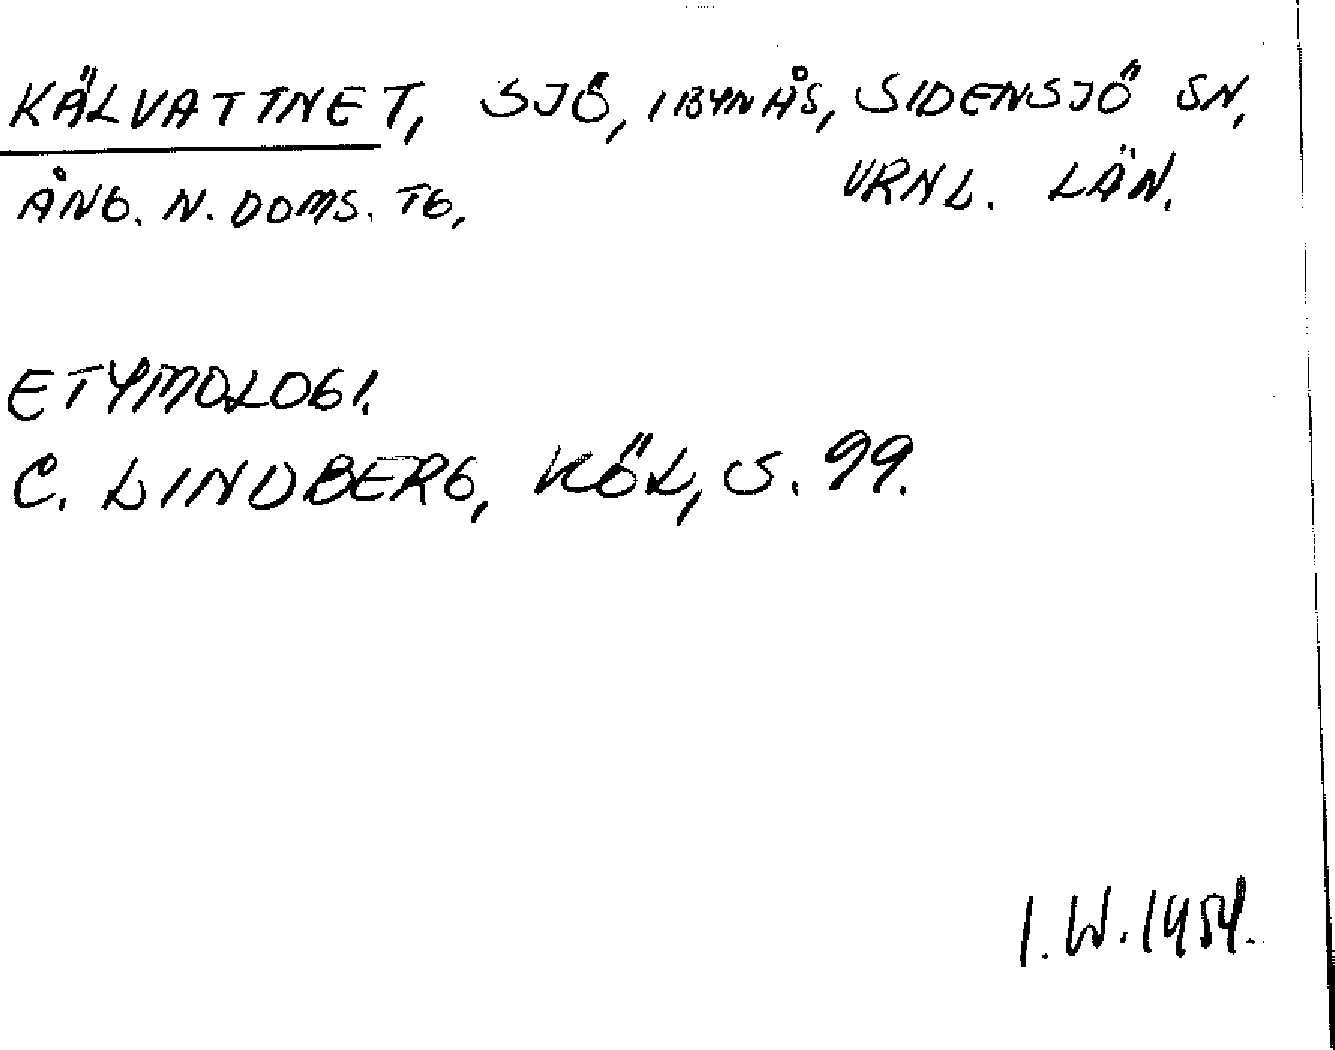 KÄLVATTNET, SJÖ, I BYN ÅS, SIDENSJÖ SN,
ÅNG. N. DOMS. TG, VRNL. LÄN.
ETYMOLOGI.
C. LINDBERG, KÖL, S. 99.
I. W. 1954.